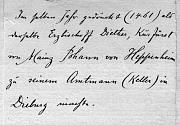 Im selben Jahr gedruckt (1461) als
derselbe Erzbischoff Diether, Kurfürst
von Mainz Johann von Heppenheim
zu seinem Amtmann (Keller) in
Dieburg machte.